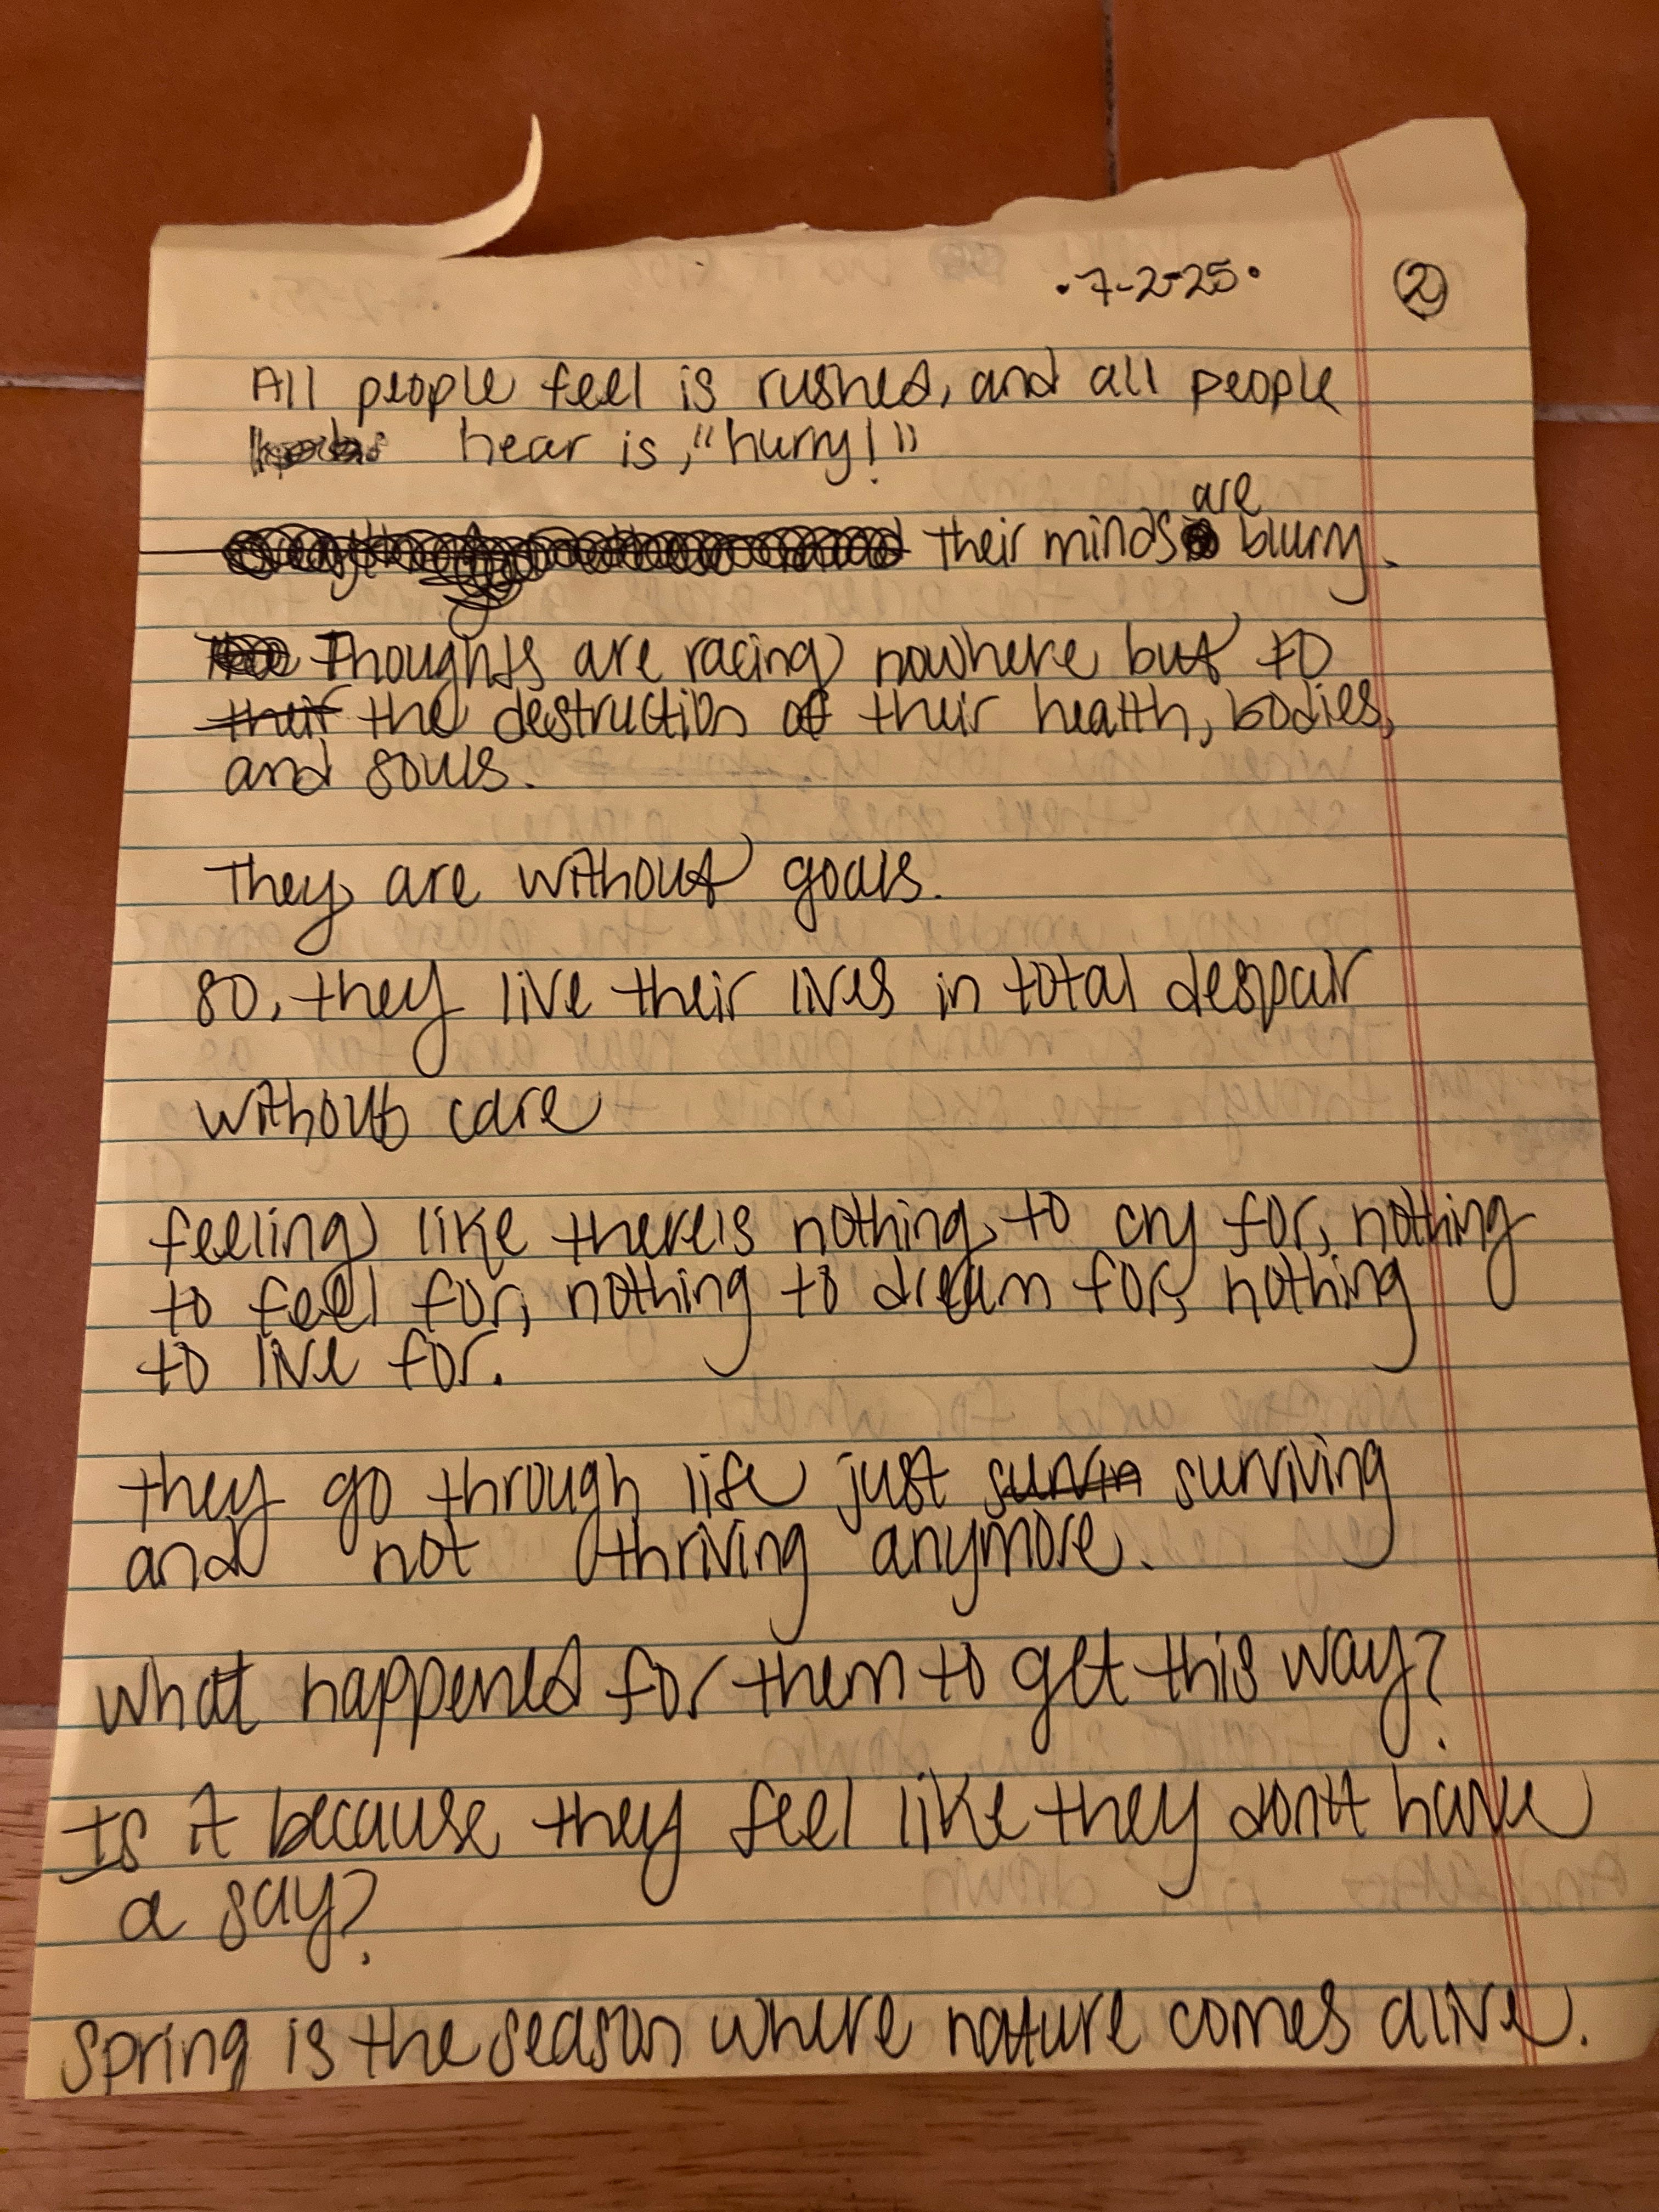 •7-2-25• 2
All people feel is rushed, and all people
hear is, "hurry!"
are
their minds blurry.
Thoughts are racing nowhere but to
their the destruction of their health, bodies,
and souls.
They are without goals.
so, they live their lives in total despair
without care
feeling like there is nothing to cry for, nothing
to feel for, nothing to dream for, nothing
to live for.
they go through life just survin surviving
and not thriving anymore.
what happened for them to get this way?
Is it because they feel like they don't have
a say?
Spring is the season where nature comes alive.